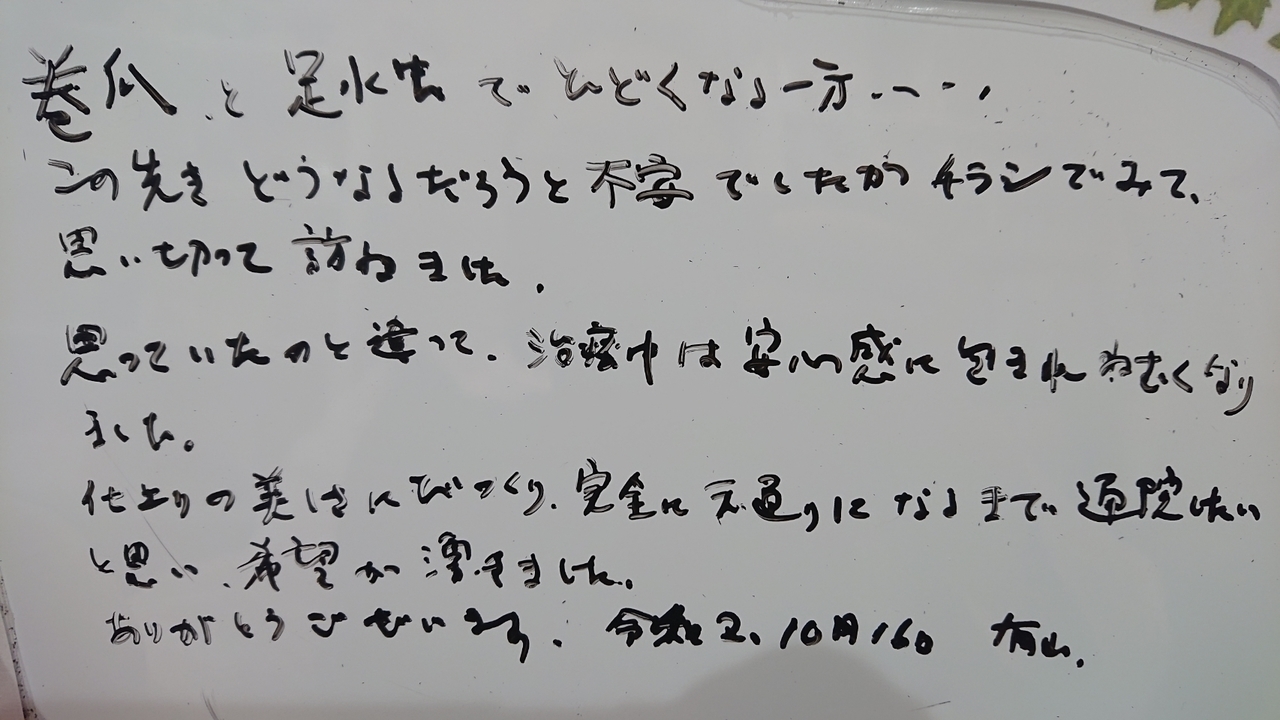 巻爪と足水虫でひどくなる一方・・・・
この先きどうなるだろうと不安でしたがチラシでみて、
思い切って訪ねました。
思っていたのと違って、治療中は安心感に包まれねむくなり
ました。
仕上りの美しさにびっくり、完全に元通りになるまで通院したい
と思い、希望が湧きました。
ありがとうございます。令和2、10月16日 有山、